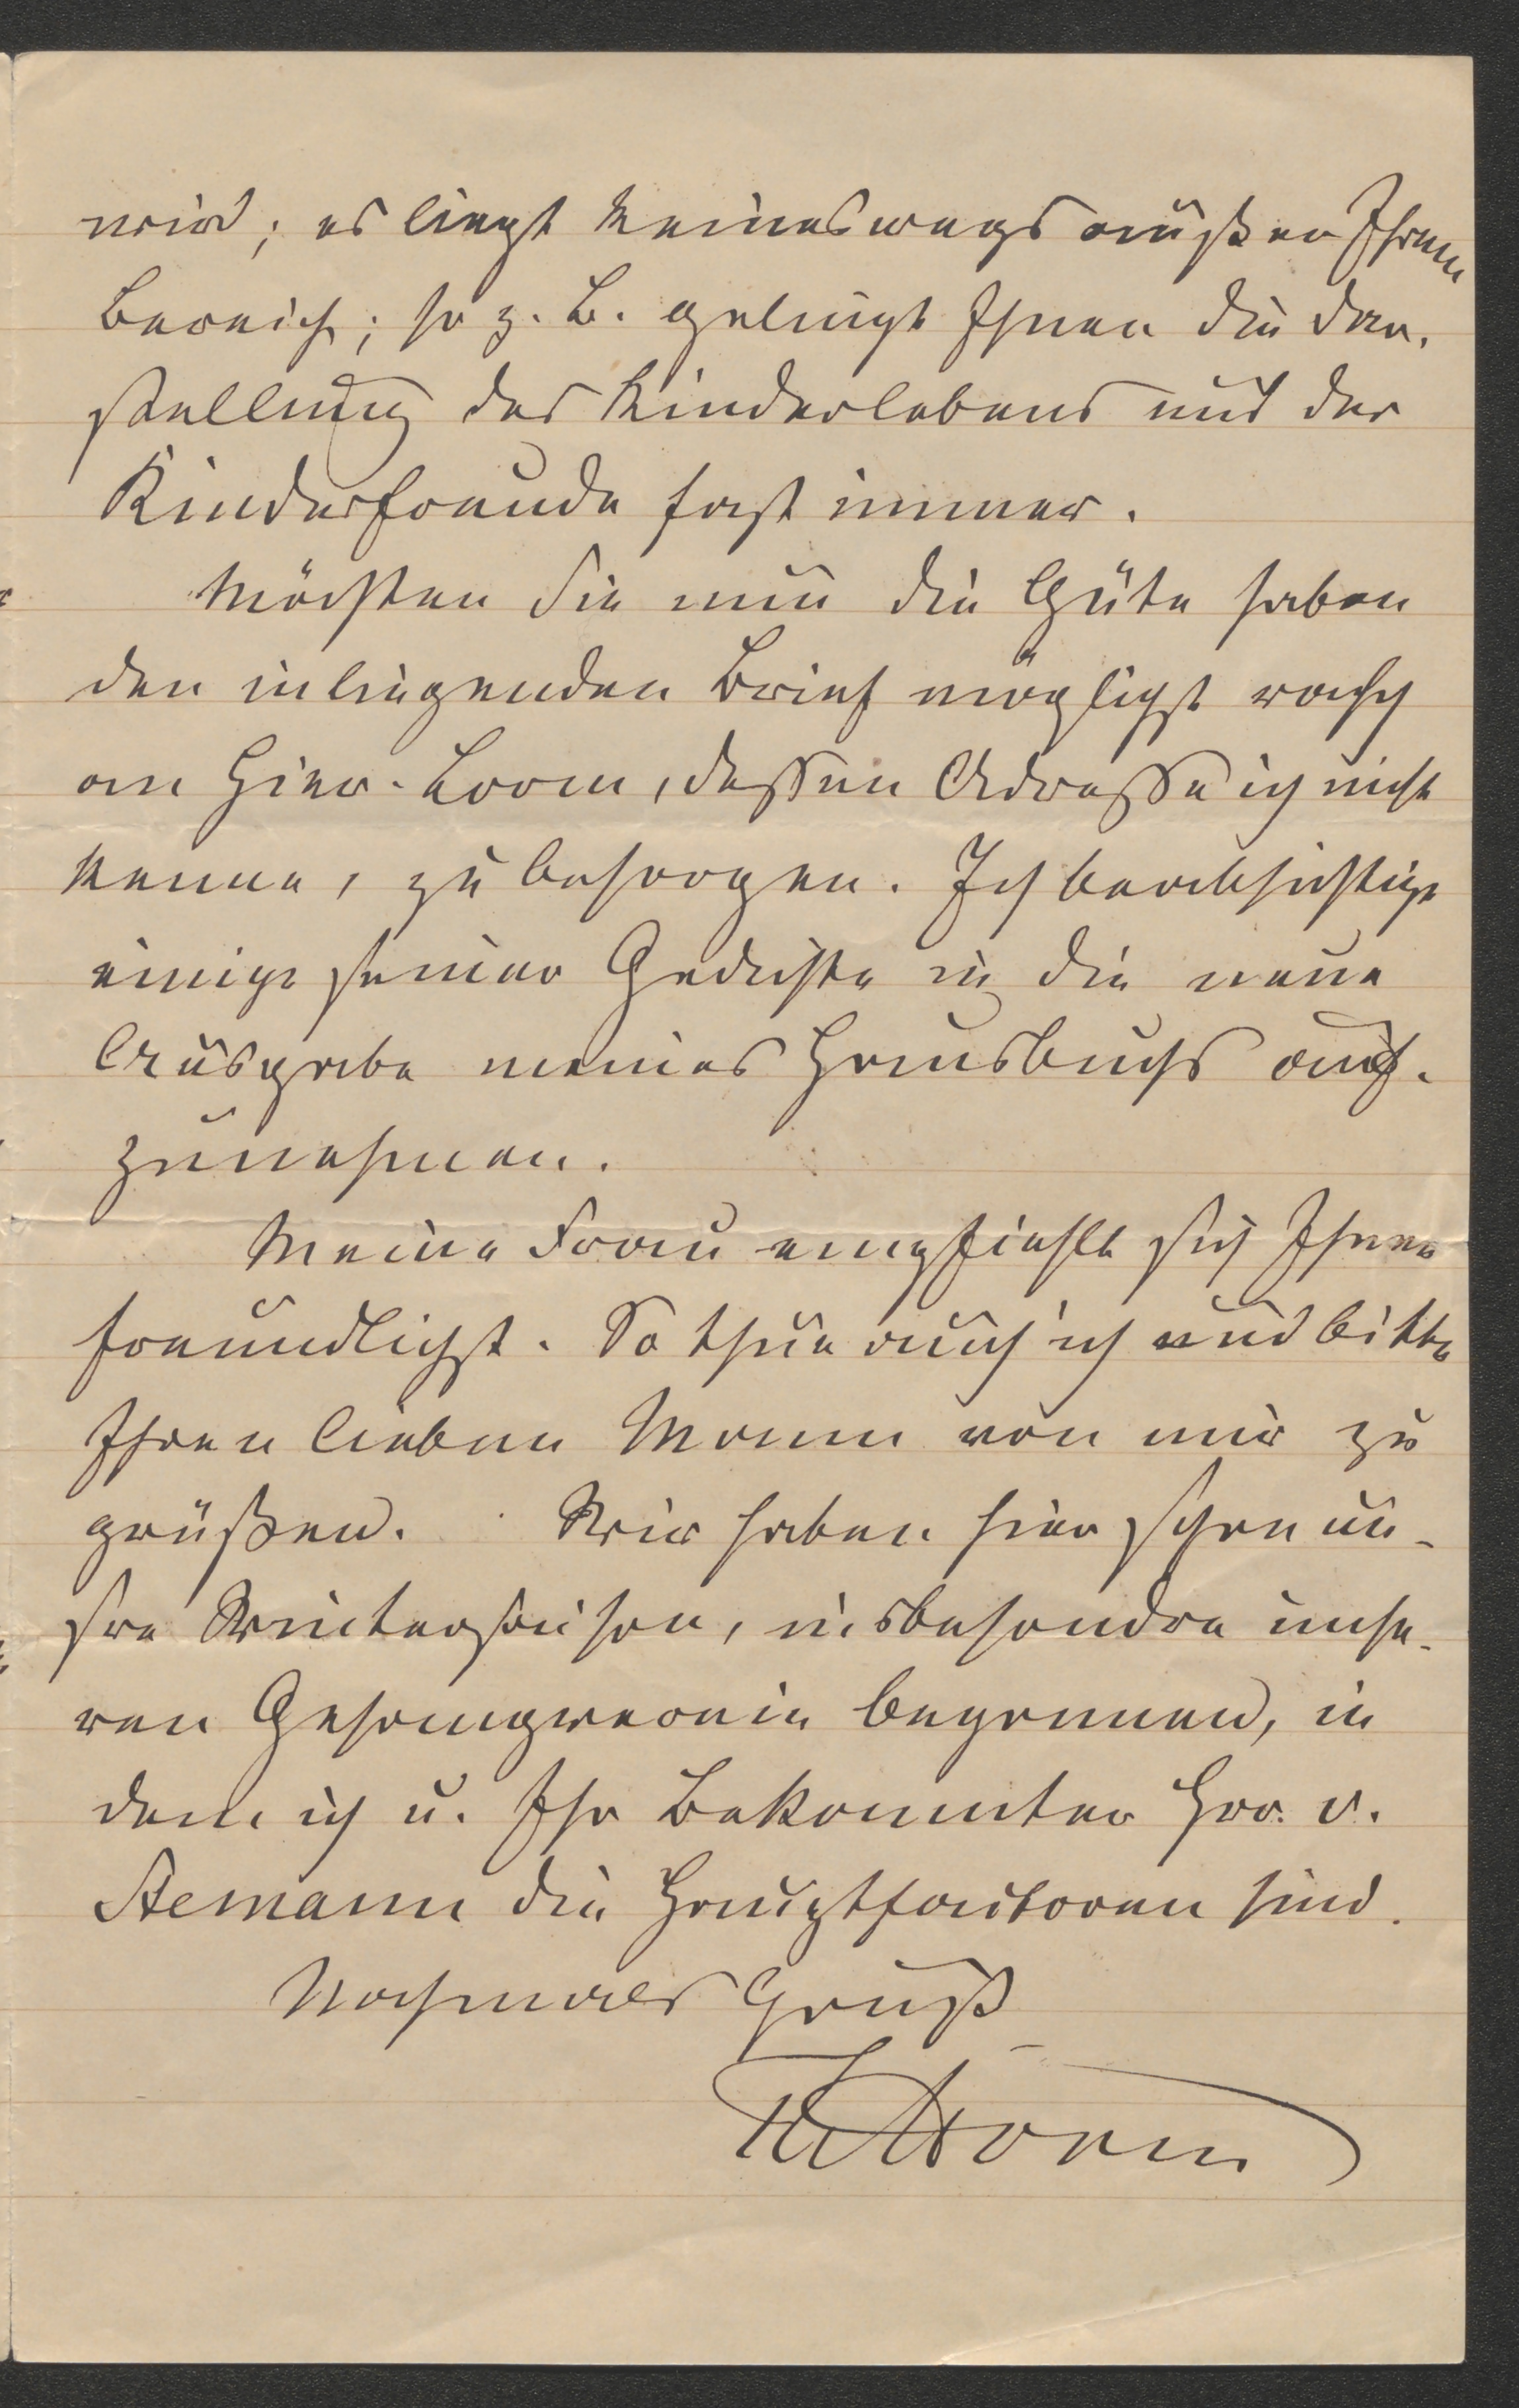 wird; es liegt keineswegs außer Ihrem
Bereich; so z. B. gelingt Ihnen die Dar-
stellung des Kinderlebens und der
Kinderfreude fast immer.
Möchten Sie nun die Güte haben
den inliegenden Brief möglichst rasch
an Hier. Lorm, dessen Adresse ich nicht
kenne, zu besorgen. Ich beabsichtige
einige seiner Gedichte in die neue
Ausgabe meines Hausbuchs auf-
zunehmen.
Meine Frau empfiehlt sich Ihnen
freundlichst. So thue auch ich und bitte
Ihren lieben Mann von mir zu
grüßen. Wir haben hier schon un-
sre Wintersaison, insbesondre unse-
ren Gesangverein begonnen, in
dem ich u. Ihr Bekannter Hrr. v.
Stemann die Hauptfautoren sind.
Nochmals Gruß
ThStorm